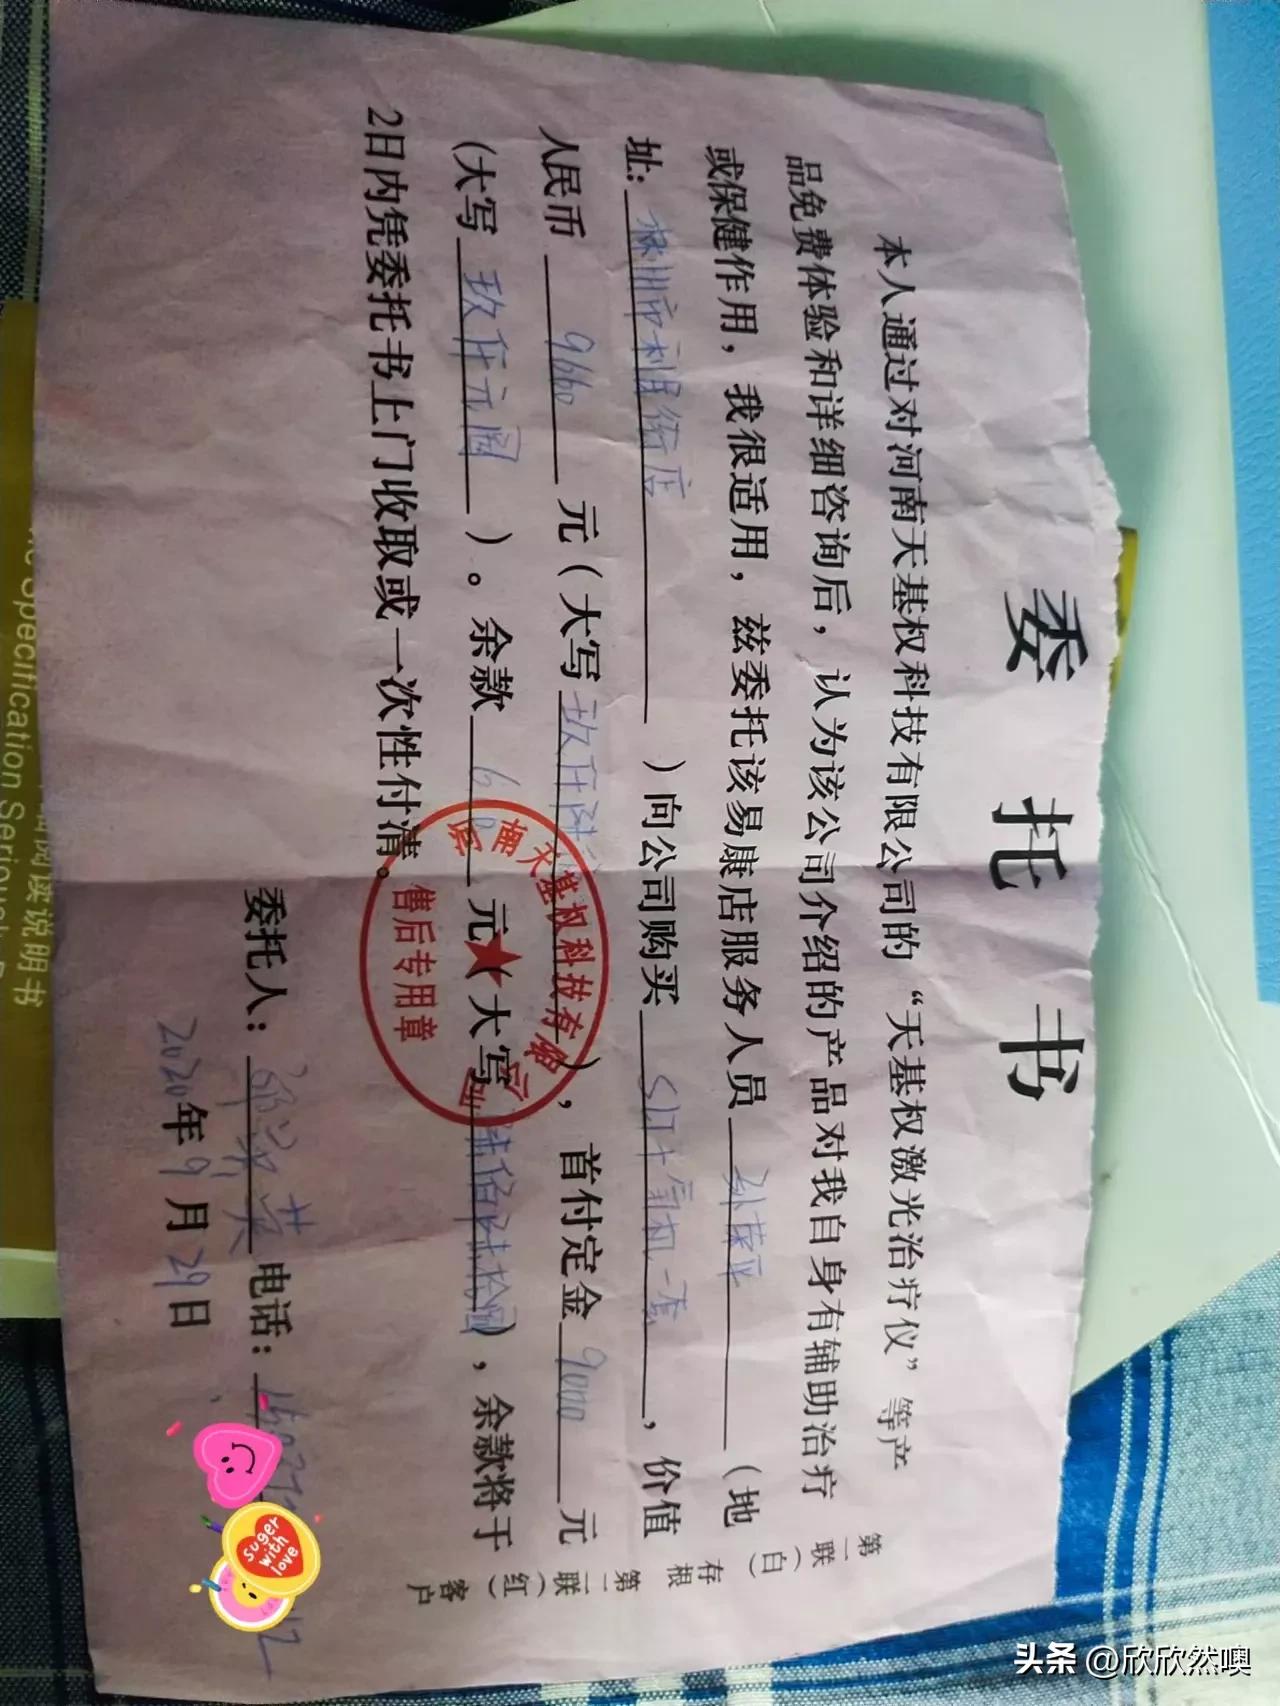 委托书
本人通过对河南天基权科技有限公司的“天基权激光治疗仪”等产
品免费体验和详细咨询后，认为该公司介绍的产品对我自身有辅助治疗
或保健作用，我很适用，兹委托该易康店服务人员孙荣平（地
址：林州市利民街店）向公司购买 一套，价值
人民币9660元（大写玖仟陆），首付定金9000元
（大写玖仟元圆）。余款6元（大写陆佰陆拾圆），余款将于
2日内凭委托书上门收取或一次性付清。
委托人：英电话：
2020年9月29日
第一联（白）存根 第二联（红）客户
河南天基权科技有限公司
售后专用章
suger with love
Specification Series
阅读说明书
头条 @欣欣然噢